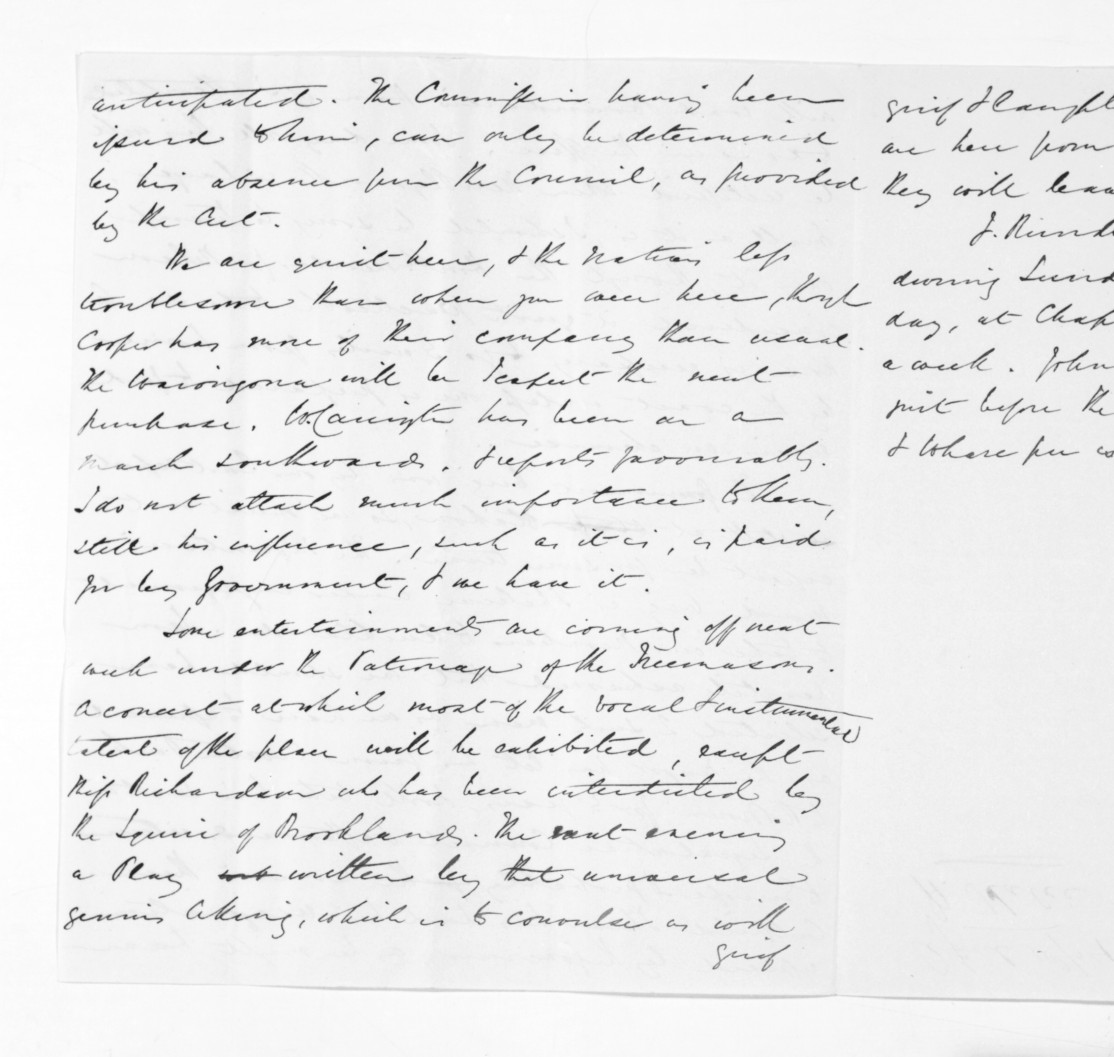 anticipated. The Commission having been
issued to him, can only be determined
by his absence from the Council, as provided
by the Act.
We are quiet here, & the Natives less
troublesome than when you were here, though
Cooper has more of their company than usual.
The Waiongona will be I expect the next
purchase. W. Carrington has been on a
march southwards, & reports favourably.
I do not attach much importance to them,
still his influence, such as it is, is paid
for by Government, & we have it.
Some entertainments are coming off next
week under the Patronage of the Freemasons.
A concert at which most of the vocal & instrumental
talent of the place will be exhibited, except
Miss Richardson who has been interdicted by
the Squire of Brooklands. The next evening
a Play written by that universal
genius King, which is to convulse us with
grief
grief & laught
are here from
they will leav
day, at Chap
a week. John
just before the